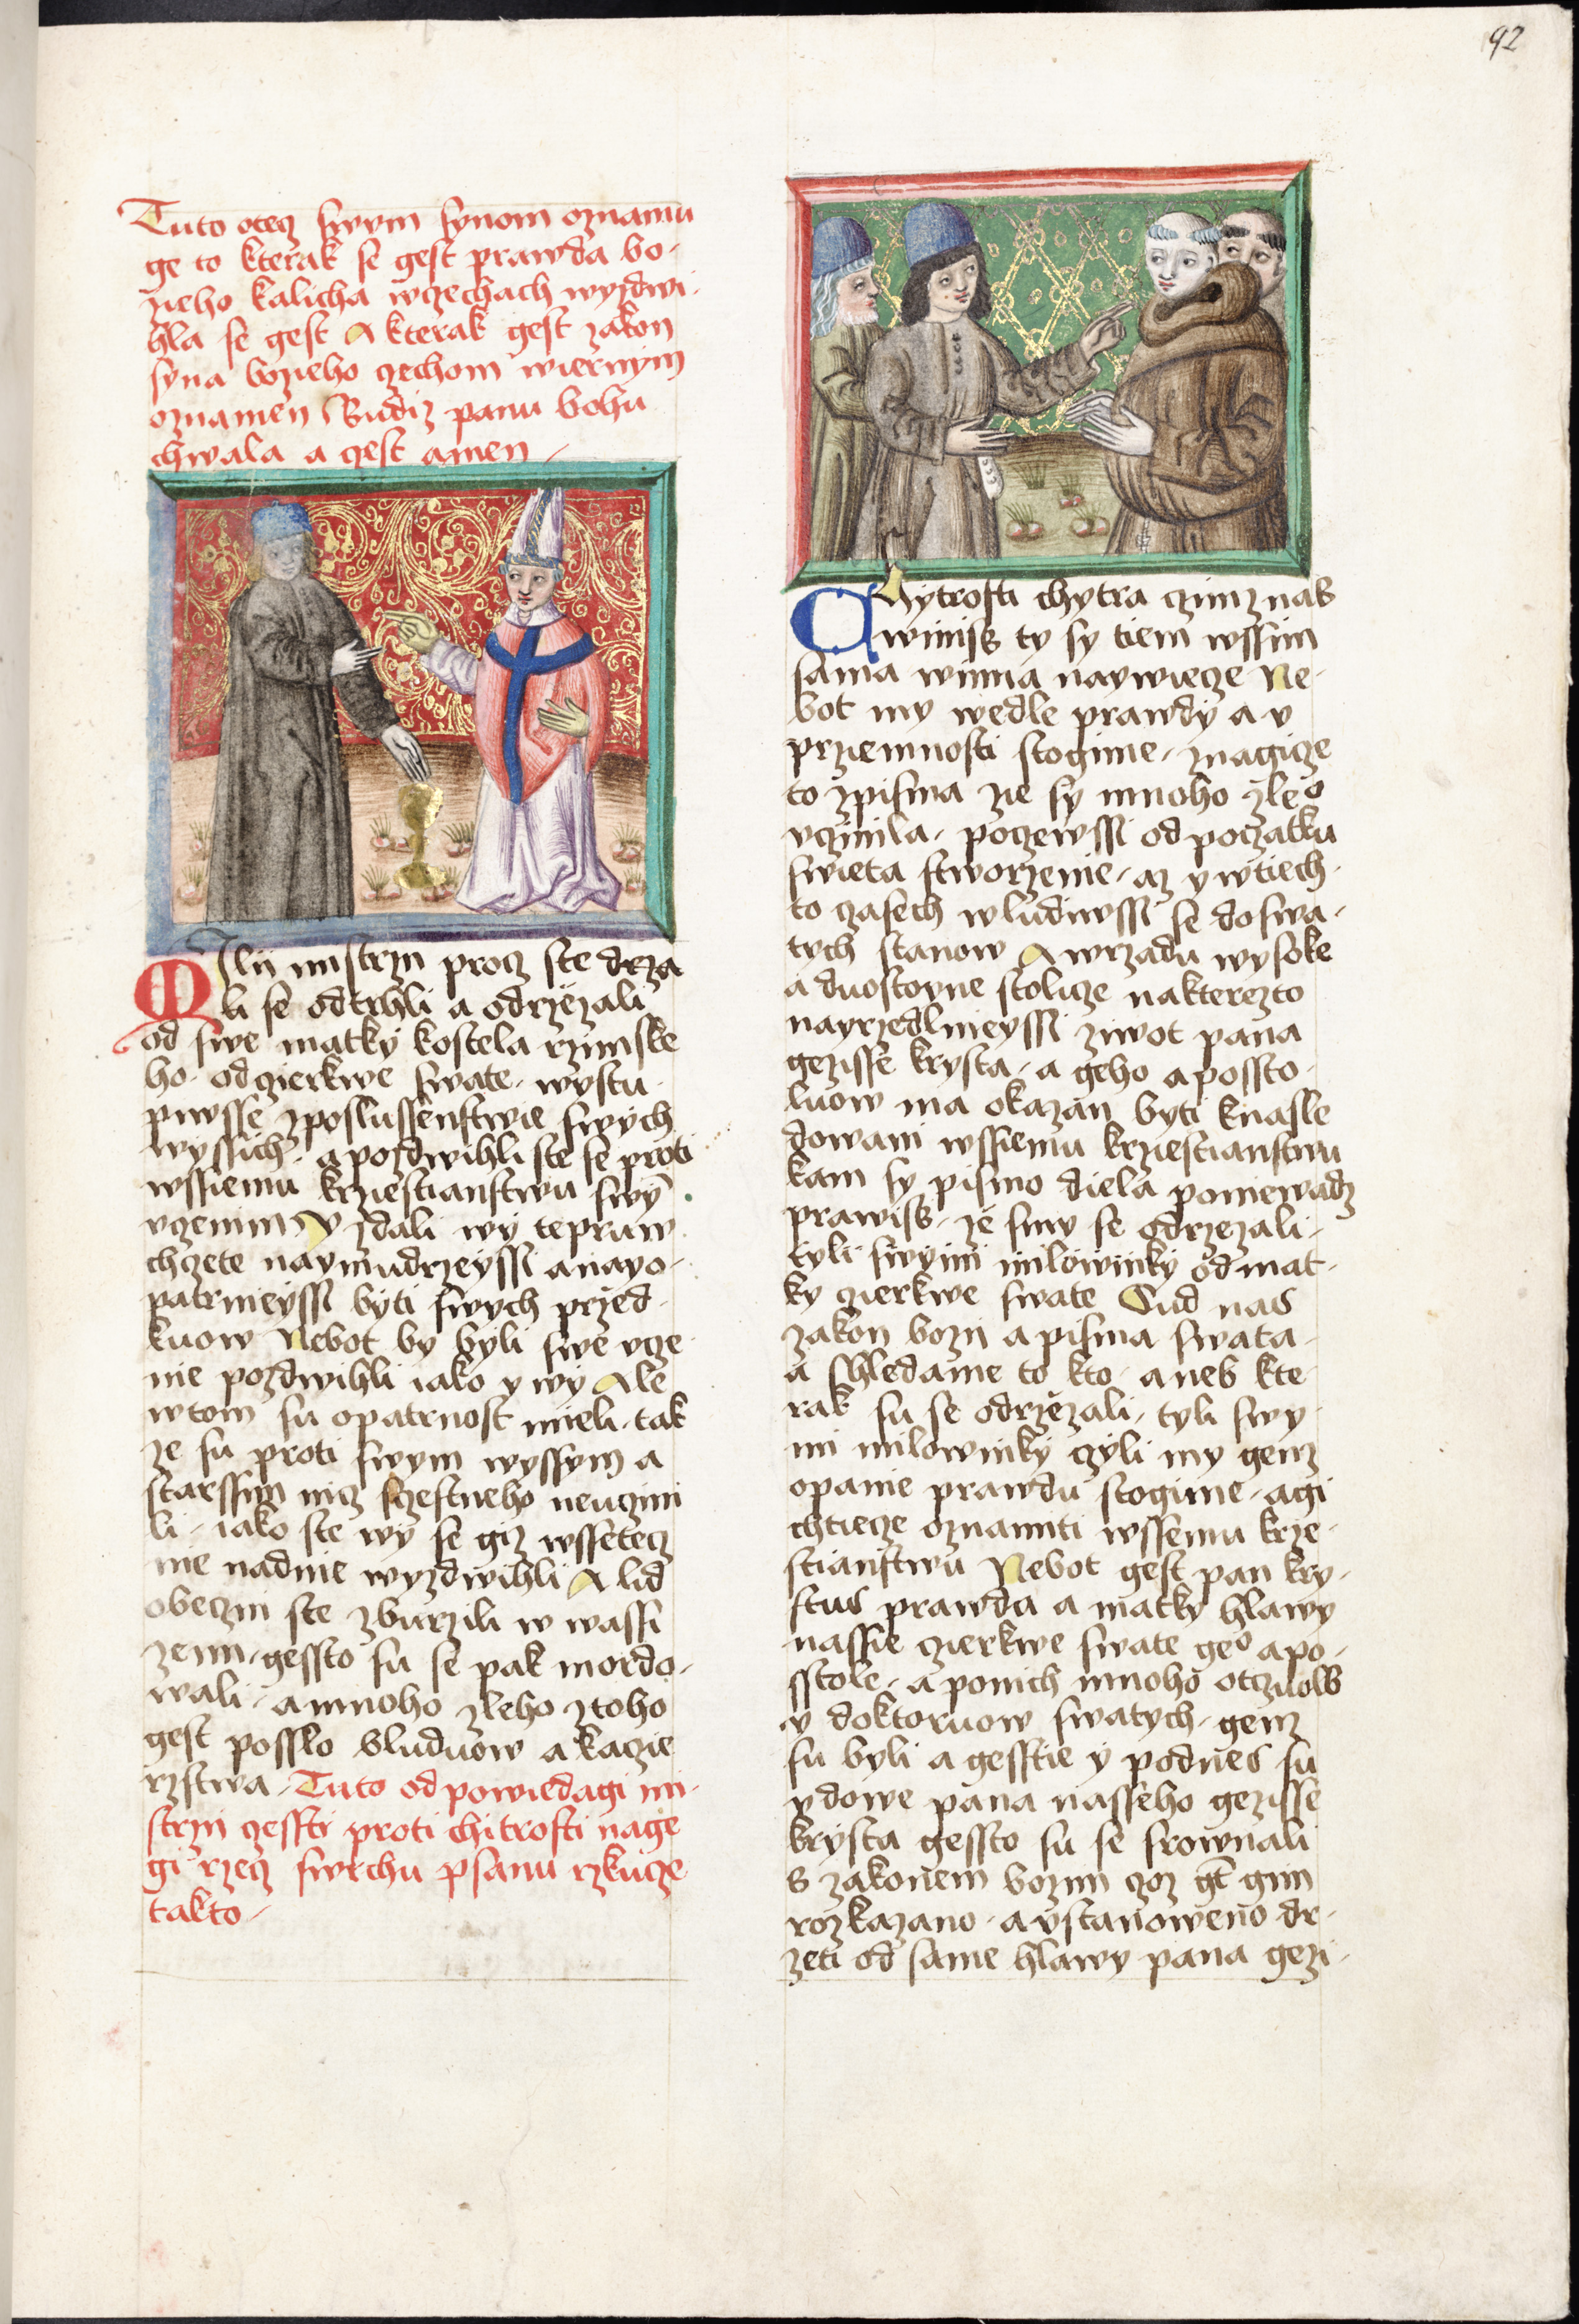 92
Tuto otecz swym synom oznamu
ge to kterak se gest prawda bo-
zieho kalicha wczechach wyzdwi-
hla se gest A kterak gest zakon
syna bozieho czechom wiernym
oznamen Budiz panu bohu
chwala a czest amen
Milij mistrzi procz ste drza
li se odtrhli a odrzezali
od swe matky kostela rzimske
ho. odczierkwe swate. wystu-
piwsse zposlussenstwie swych
wyssich. apozdwihli ste se proti
wssiemu krziestianstwu swy
vczenim Y zdali wy tepruw
chczete naymudrzeyssi anayo-
patrnieyssi byti swych przed-
kuow Nebot by byli swe vcze
nie pozdwihli iako y wy Ale
wtom su opatrnost mieli. tak
ze su proti swym wyssym a
starssim nicz sczestneho neuczini
li. iako ste wy se giz wssetecz
nie nadnie wyzdwihli A lid
obeczni ste zburzili w wassi
zemi. gessto su se pak mordo-
wali. amnoho zleho ztoho
gest posslo bluduow akaczie
rzstwa. Tuto odpowiedagi mi-
strzi czessti proti chitrosti nage
gi rzecz swrchu psanu rzkucze
takto
Chytrosti chytra czimz nas
winiss ty sy tiem wssim
sama winna naywiecze Ne-
bot my wedle prawdy a v
prziemnosti stogime. znagicze
to zpisma zie sy mnoho zleo
vczinila. poczewssi od poczatku
swieta stworzenie. az y wtiech-
to czasech wludiwssi se doswa-
tych stanow A wrzadu wysoke
a duostoyne stolicze nakterezto
nayrzedlnieyssi ziwot pana
gezisse krysta. a geho apossto-
luow ma okazan byti knasle
dowani wssiemu krziestianstwu
kam sy pismo diela poniewadz
prawiss. ze smy se odrzezali.
tyli swymi milowniky odmat-
ky czierkwe swate Sud nas
zakon bozi a pisma swata.
a shledame to kto. aneb kte-
rak su se odrzezali. tyli swy-
mi milowniky czyli my genz
opanie prawdu stogime. agi
chtiecze oznamiti wssemu krze-
stianstwu Nebot gest pan kry-
stus prawda a matky hlawy
nassie czierkwe swate geo apo-
sstole. aponich mnoho otczuow
y doktoruow swatych. genz
su byli a gesstie y podnes su
vdowe pana nasseho gezisse
krysta gessto su se srownali
s zakonem bozim czoz gt gim
rozkazano. avstanoweno dr-
zeti od same hlawy pana gezi-